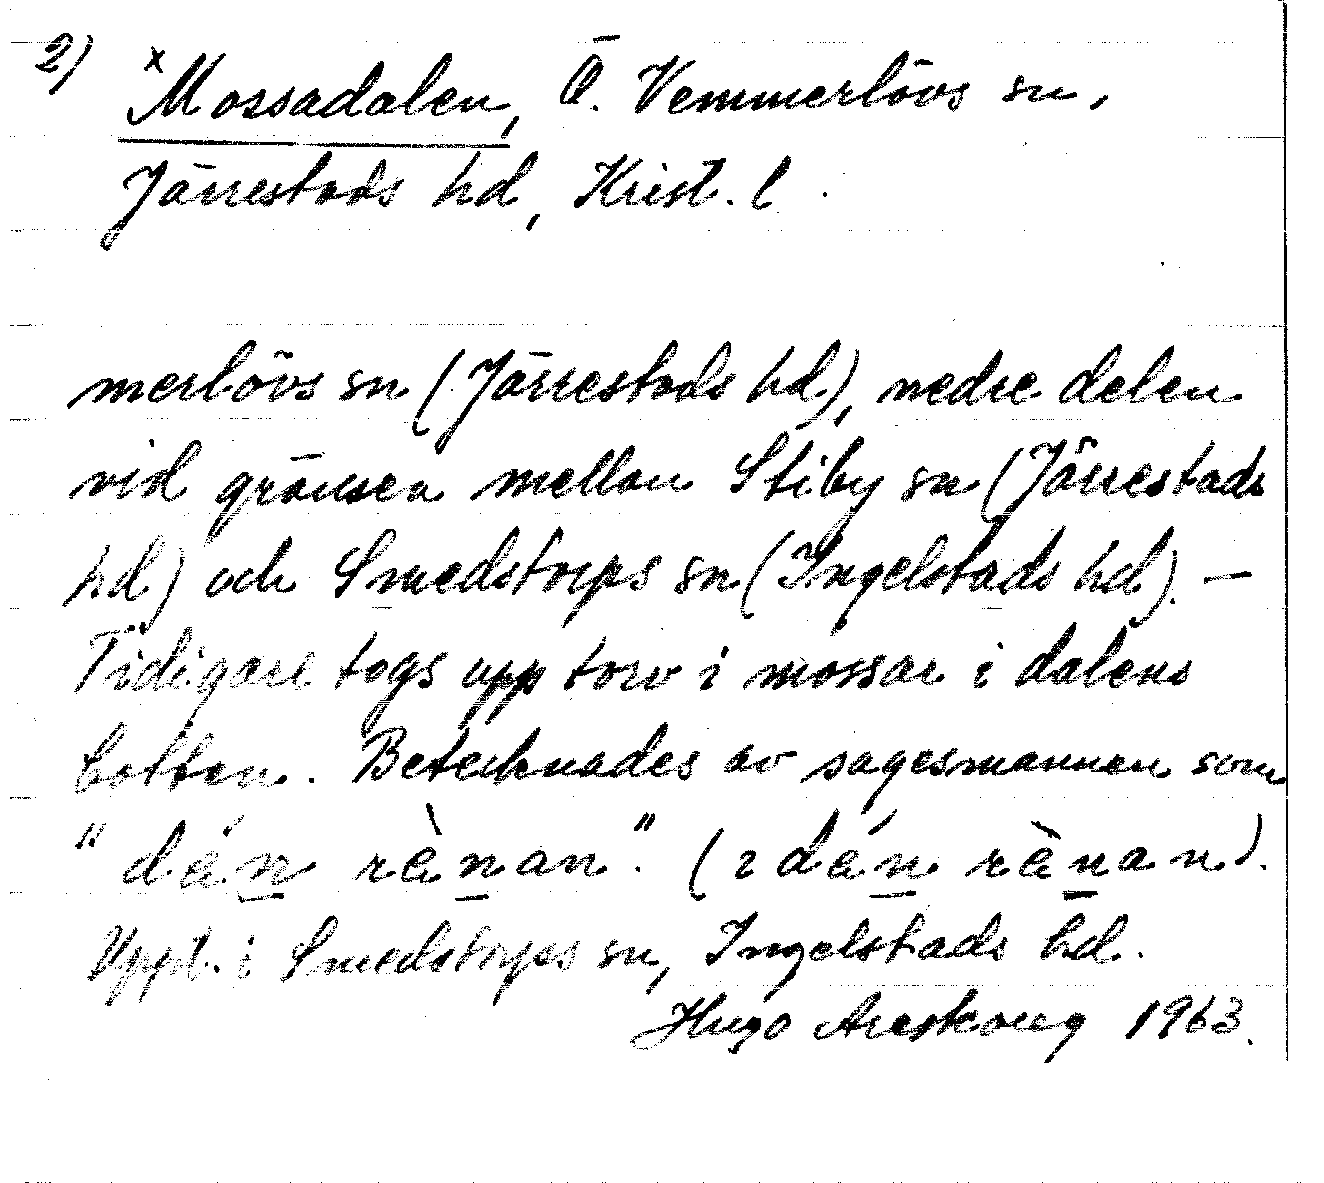 2) ×Mossadalen, Ö. Vemmerlövs sn,
Järrestads hd, Krist. l.
merlövs sn (Järrestads hd), nedre delen
vid gränsen mellan Stiby sn (Järrestads
hd) och Smedstorps sn (Ingelstads hd). —
Tidigare togs upp torv i mossar i dalens
botten. Betecknades av sagesmannen som
"dán̲ rèn̲an". (ı dán̲ rèn̲an).
Uppt. i Smedstorps sn, Ingelstads hd.
Hugo Areskoug 1963.